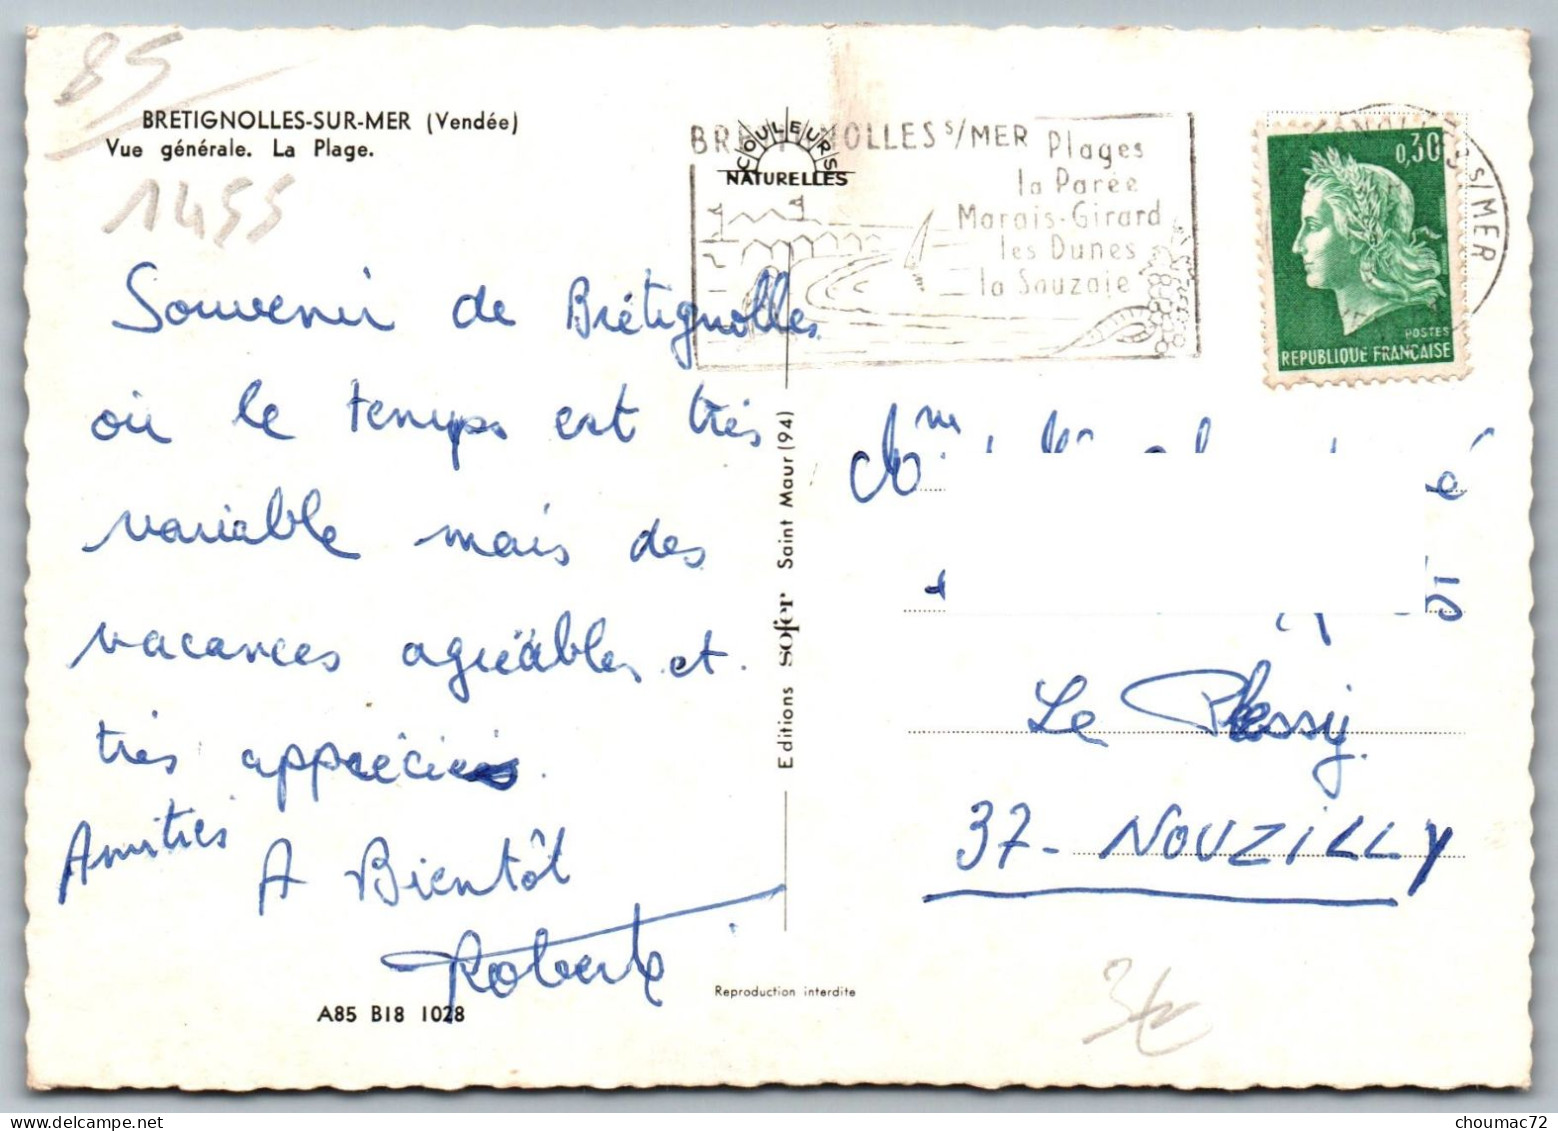 85
BRETIGNOLLES-SUR-MER (Vendée)
Vue générale. La Plage.
1455
Souvenir de Brétignolles
où le temps est très
variable mais des
vacances agréables et
très appréciées.
Amitiés
A Bientôt
Robert
A85 B18 1028
COULEURS
NATURELLES
BRETIGNOLLES S/MER
Plages
la Parée
Marais-Girard
les Dunes
la Sauzaie
S/MER
0,30
POSTES
REPUBLIQUE FRANÇAISE
Editions sofer Saint Maur (94)
Le Plessy
37- NOUZILLY
Reproduction interdite
3€
choumac72